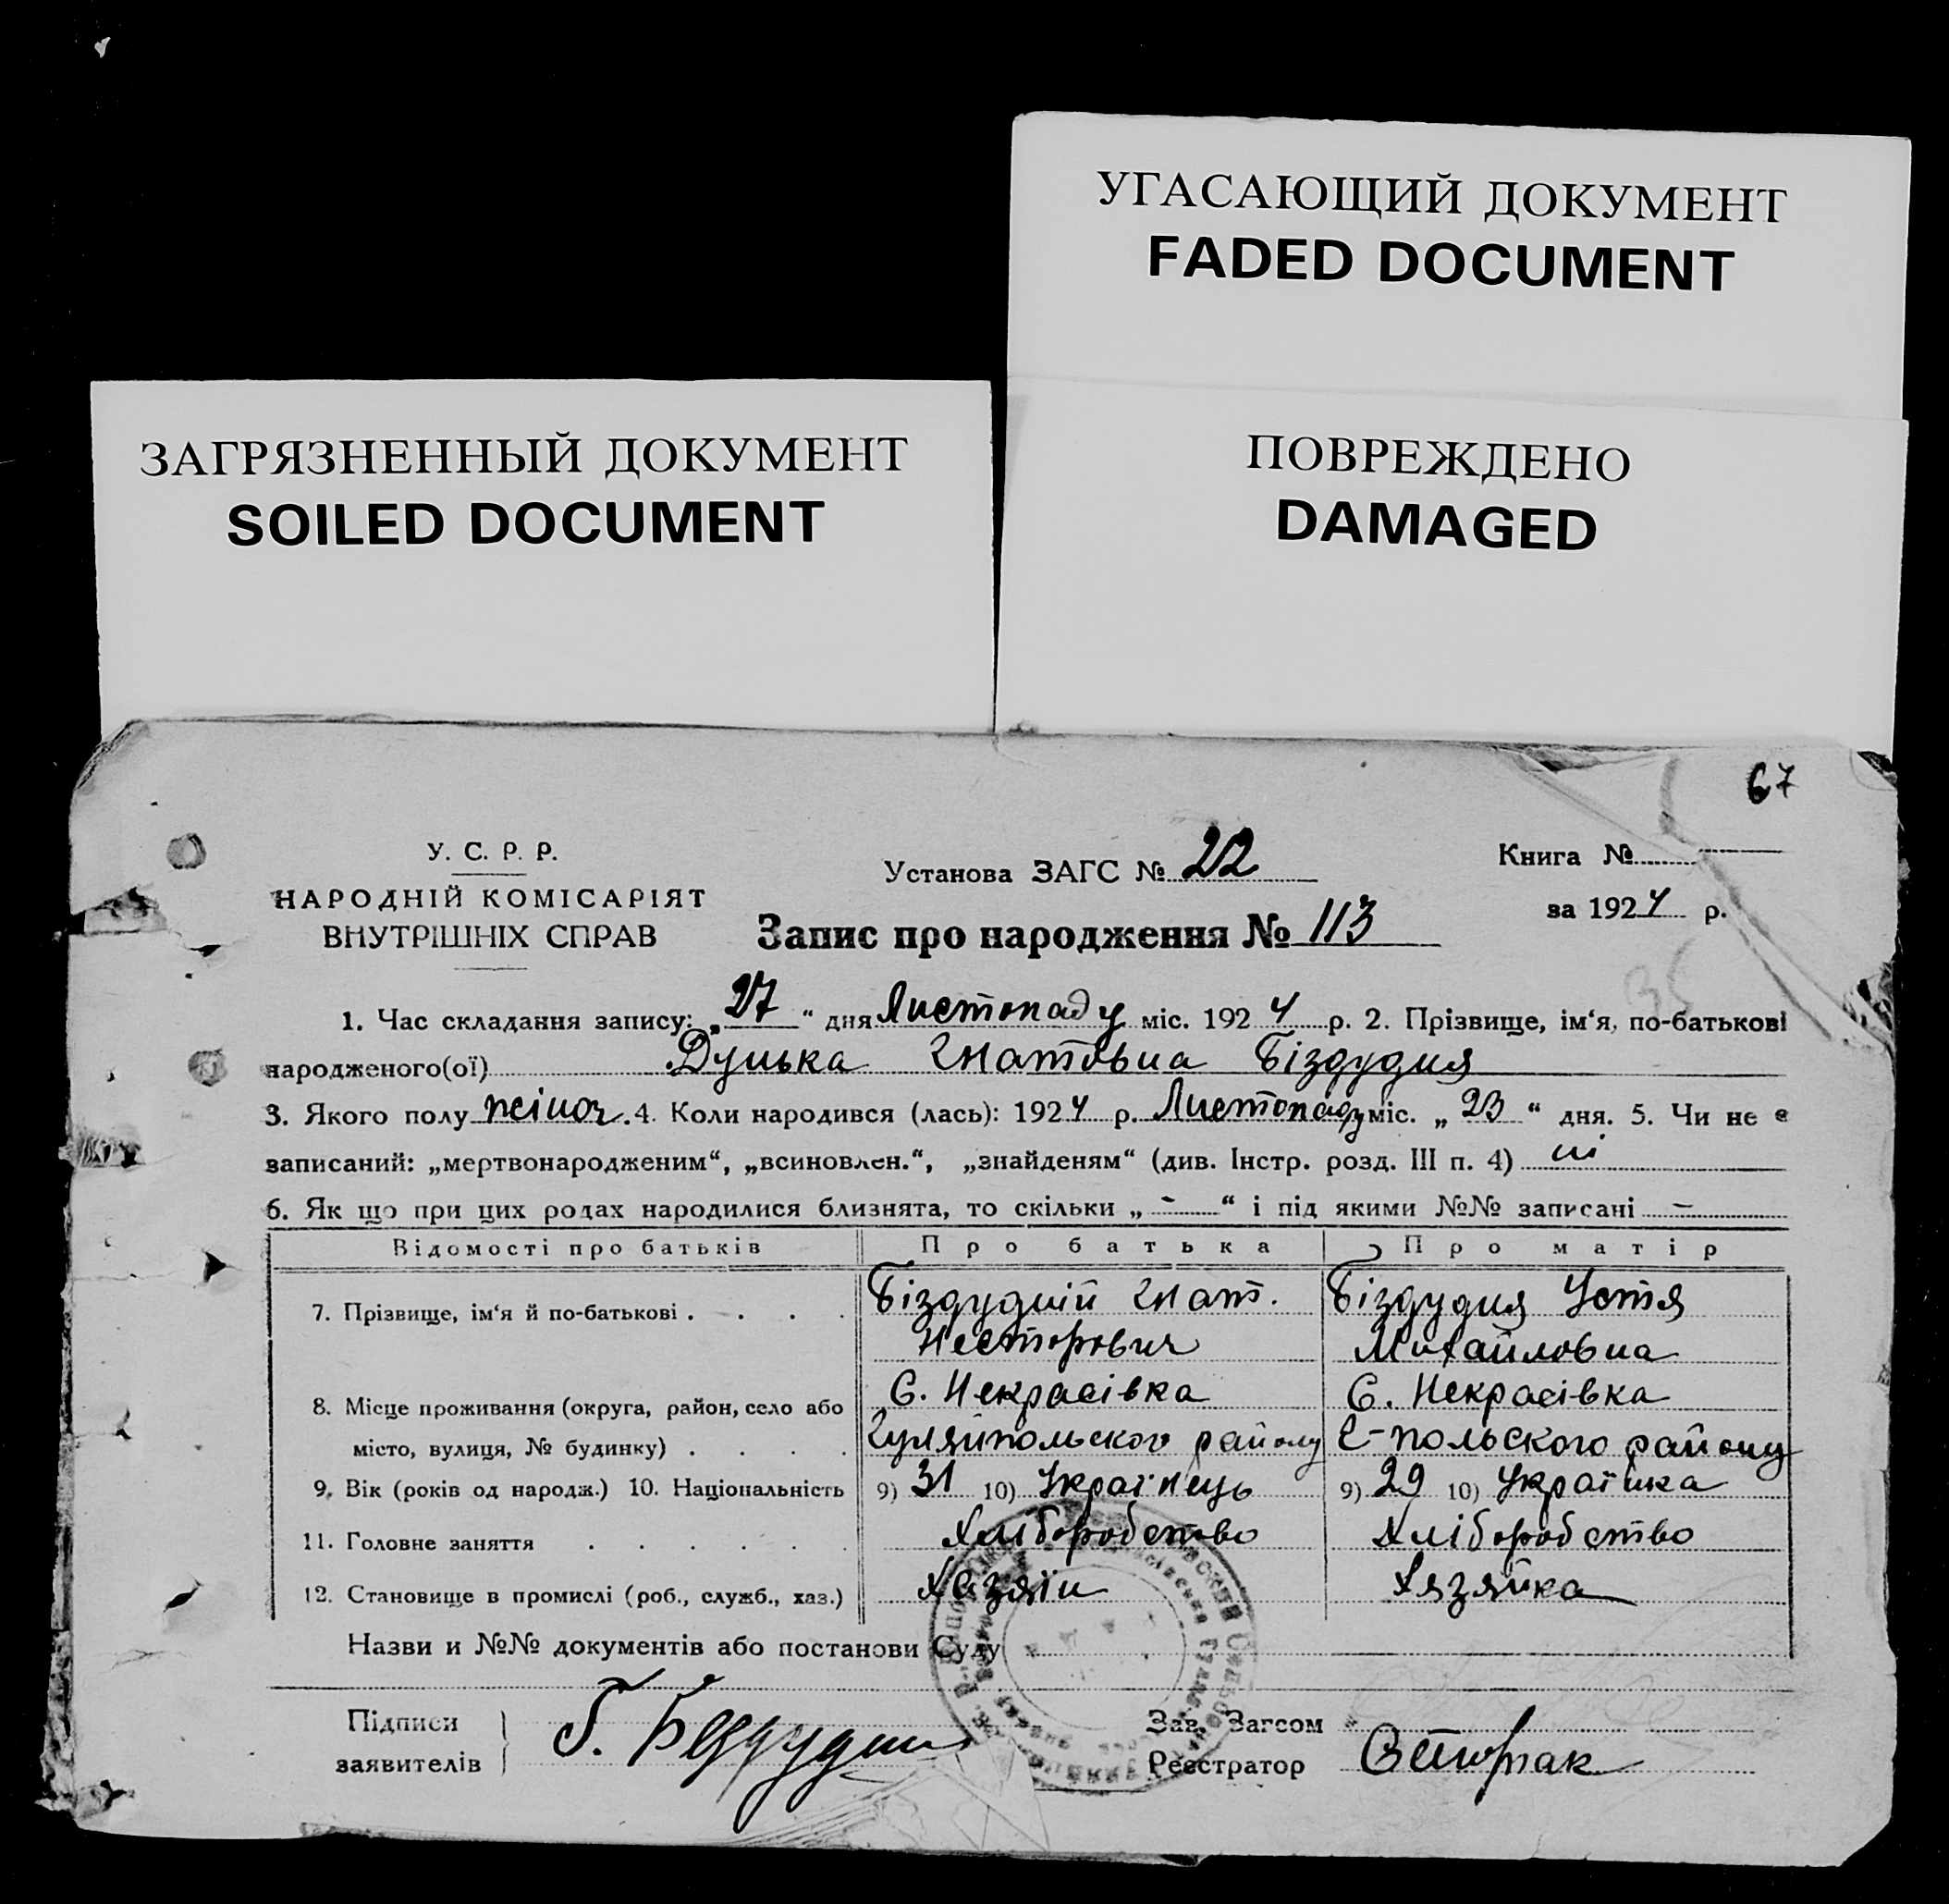 УГАСАЮЩИЙ ДОКУМЕНТ
FADED DOCUMENT
ЗАГРЯЗНЕННЫЙ ДОКУМЕНТ
SOILED DOCUMENT
ПОВРЕЖДЕНО
DAMAGED
67
У. С. Р. Р.
НАРОДНІЙ КОМІСАРІЯТ
ВНУТРІШНІХ СПРАВ
Установа ЗАГС № 22
Запис про народження № 113
Книга №
за 1924 р.
35
1. Час складання запису: „27“ дня Листопаду міс. 1924 р. 2. Прізвище, ім‘я, по-батькові
народженого(ої) Дунька Гнатовна Біздудня
3. Якого полу жіноч. 4. Коли народився (лась): 1924 р. Листопаду міс. „23“ дня. 5. Чи не є
записаний: „мертвонародженим“, „всиновлен.“, „знайденям“ (див. Інстр. розд. III п. 4) ні
6. Як що при цих родах народилися близнята, то скільки „-“ і під якими №№ записані -
Відомості про батьків Про батька Про матір
7. Прізвище, ім‘я й по-батькові . . . . Біздудній Гнат. Біздудня Устя
Несторович Михайловна
8. Місце проживання (округа, район, село або С. Некрасівка С. Некрасівка
місто, вулиця, № будинку) . . . . Гуляйпольского району Г-польского району
9. Вік (років од народж.) 10. Національність 9) 31 10) Українець 9) 29 10) Українка
11. Головне заняття . . . . . . Хліборобство Хліборобство
12. Становище в промислі (роб., служб., хаз.) Хазяїн Хазяйка
Назви и №№ документів або постанови Суду
Підписи
заявителів
Г.
Зав. Загсом
Реєстратор